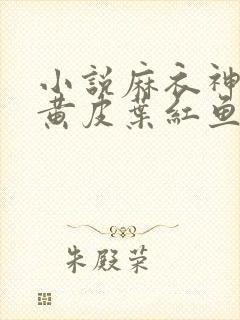 小說麻衣神
黃皮葉紅魚
朱殿荣